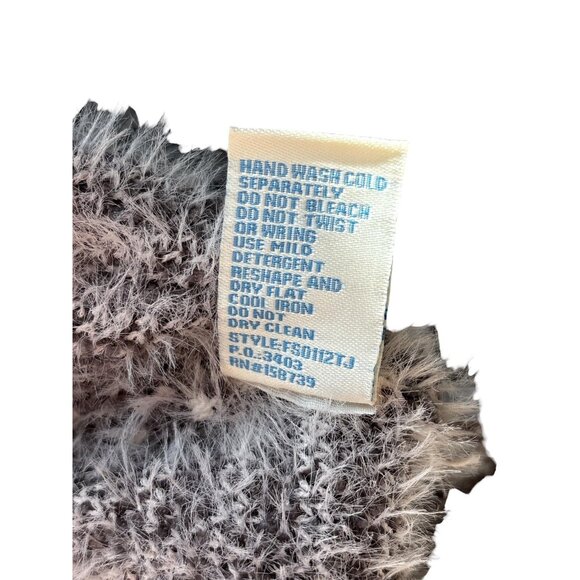 HAND WASH COLD
SEPARATELY
DO NOT BLEACH
DO NOT TWIST
OR WRING
USE MILD
DETERGENT
RESHAPE AND
DRY FLAT
COOL IRON
DO NOT
DRY CLEAN
STYLE:FS0112TJ
P.O.:3403
RN#158739